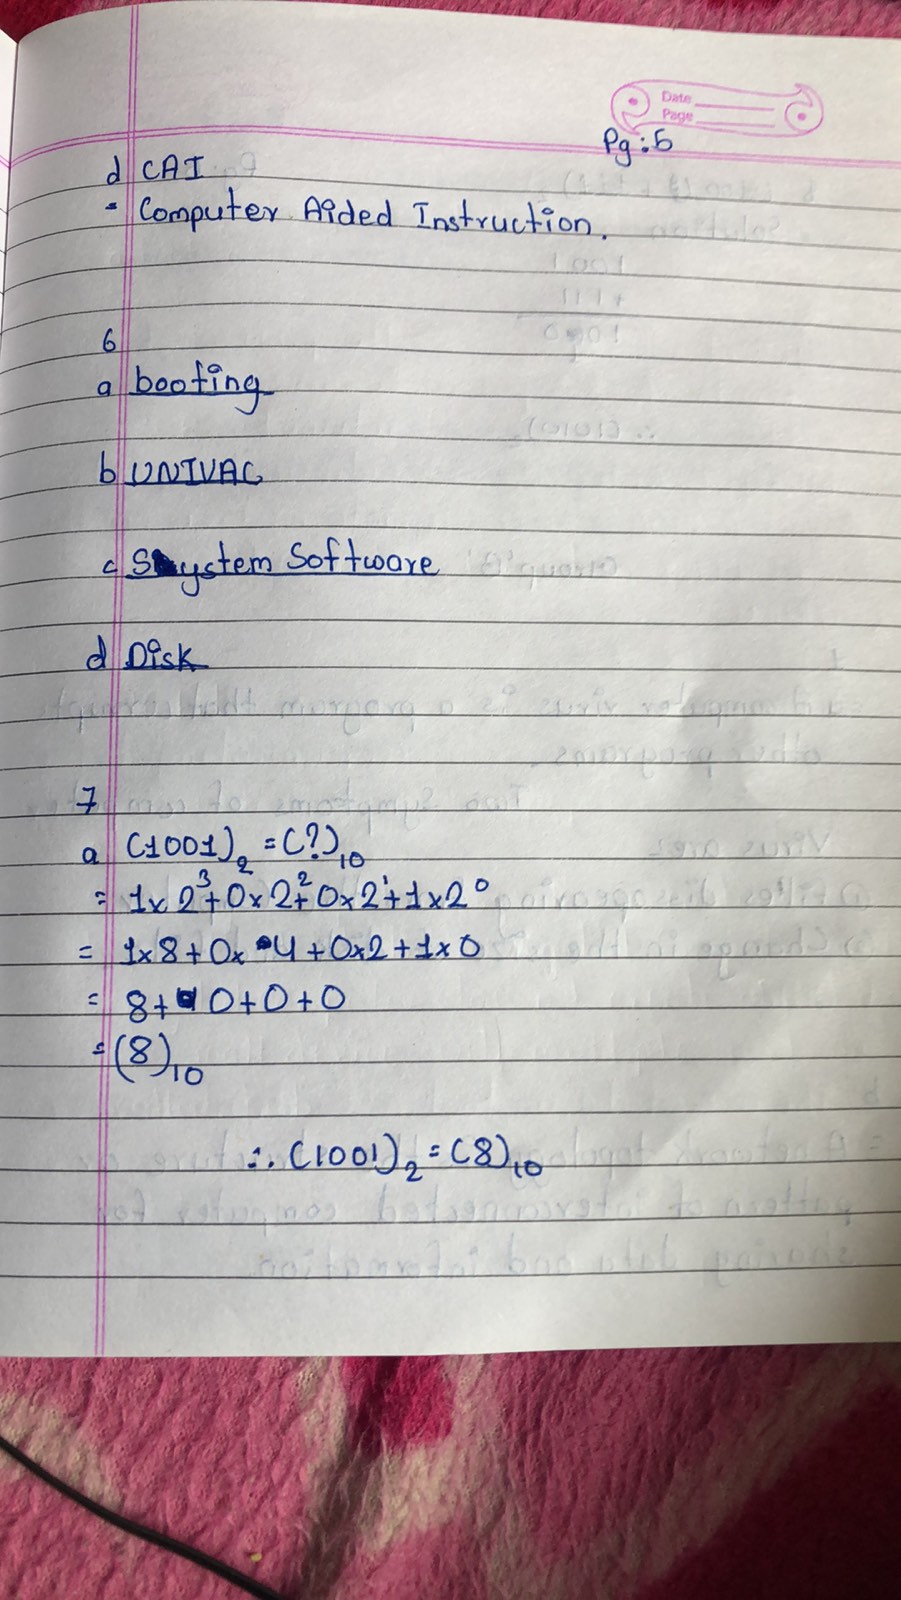 Date
Page
Pg:5
d CAI
= Computer Aided Instruction.
6
a booting
b UNIVAC
c System Software
d Disk
7
a (1001)₂ = (?)₁₀
= 1×2³+0×2²+0×2¹+1×2⁰
= 1×8+0×4+0×2+1×0
= 8+0+0+0
= (8)₁₀
∴ (1001)₂ = (8)₁₀